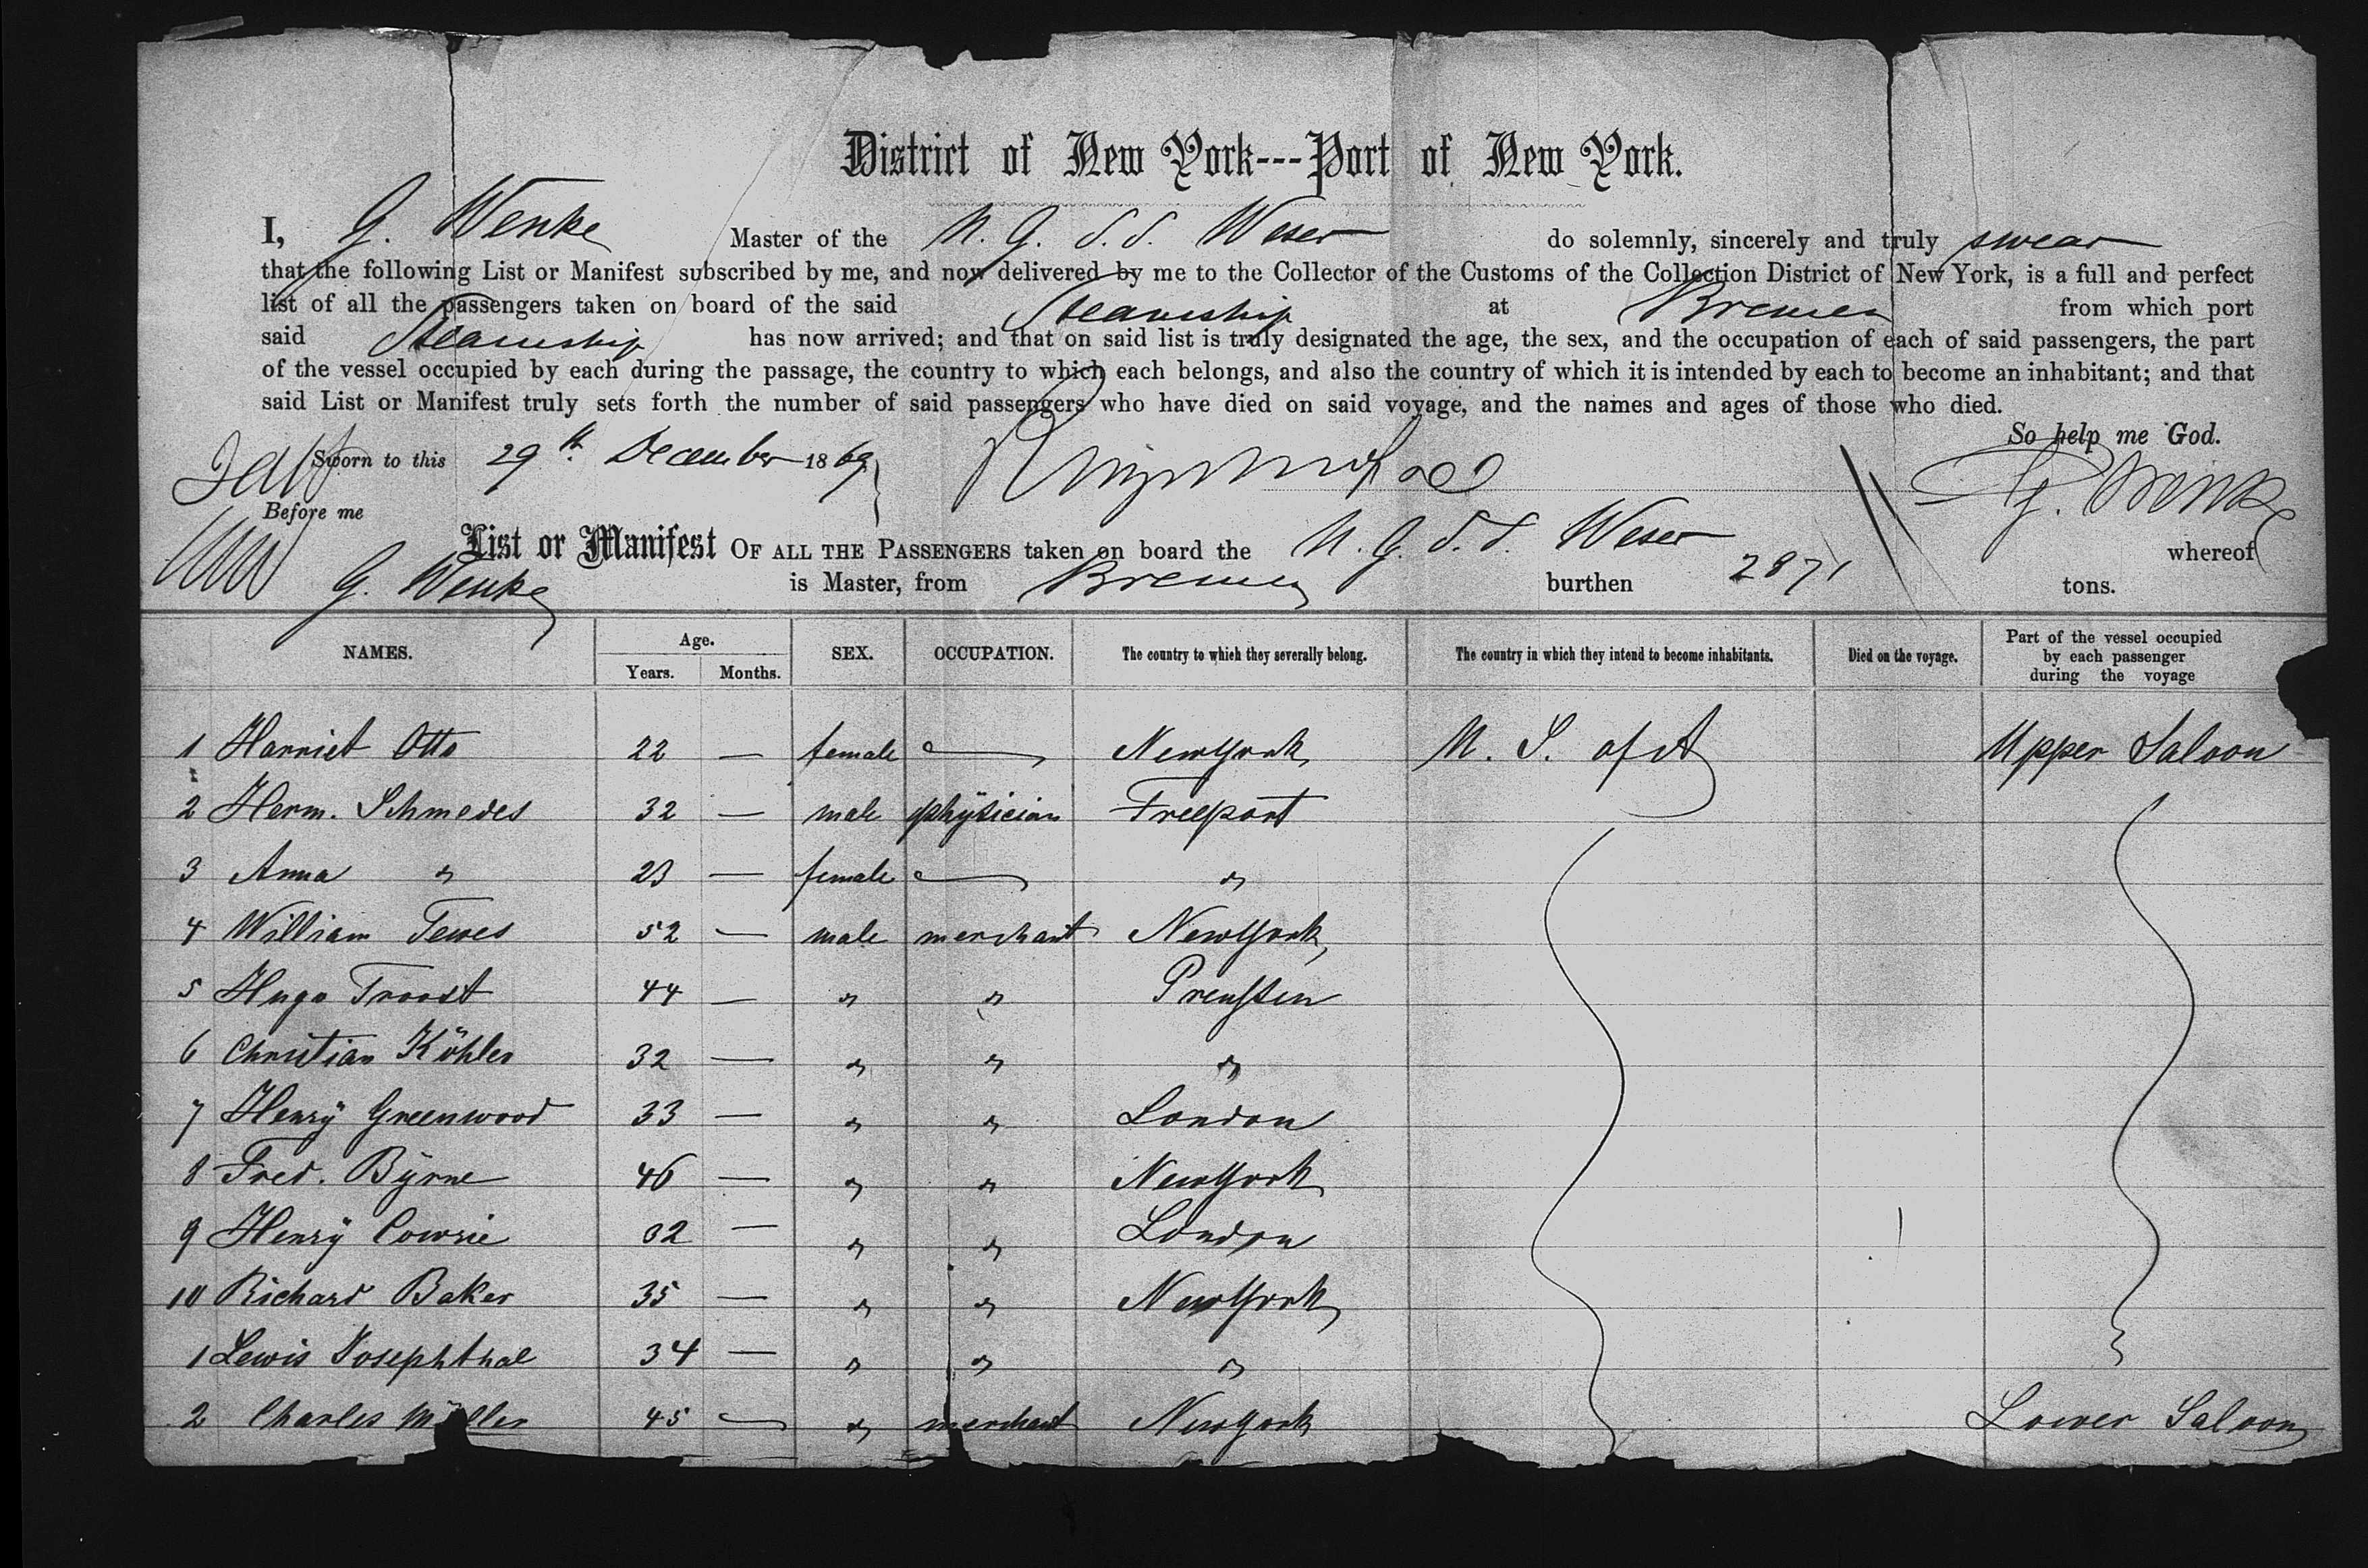 District of New York---Port of New York.
I, G. Wenke Master of the N. G. S. S. Weser do solemnly, sincerely and truly swear
that the following List or Manifest subscribed by me, and now delivered by me to the Collector of the Customs of the Collection District of New York, is a full and perfect
list of all the passengers taken on board of the said Steamship at Bremen from which port
said Steamship has now arrived; and that on said list is truly designated the age, the sex, and the occupation of each of said passengers, the part
of the vessel occupied by each during the passage, the country to which each belongs, and also the country of which it is intended by each to become an inhabitant; and that
said List or Manifest truly sets forth the number of said passengers who have died on said voyage, and the names and ages of those who died.
So help me God.
Sworn to this 29th December 1869
G. Wenke
Before me
List or Manifest OF ALL THE PASSENGERS taken on board the N. G. S. S. Weser whereof
G. Wenke is Master, from Bremen burthen 2871 tons.
NAMES. Age. Years. Months. SEX. OCCUPATION. The country to which they severally belong. The country in which they intend to become inhabitants. Died on the voyage. Part of the vessel occupied by each passenger during the voyage
1 Harriet Otto 22 — female — NewYork U. S. of A Upper Saloon
2 Herm. Schmedes 32 — male physician Freeport
3 Anna " 23 — female — "
4 William Tewes 52 — male merchant NewYork
5 Hugo Troost 44 — " " Preußen
6 Christian Köhler 32 — " " "
7 Henry Greenwood 33 — " " London
8 Fred. Byrne 46 — " " NewYork
9 Henry Cowrie 32 — " " London
10 Richard Baker 35 — " " NewYork
1 Lewis Josephthal 34 — " " "
2 Charles Müller 45 — " merchant NewYork Lower Saloon